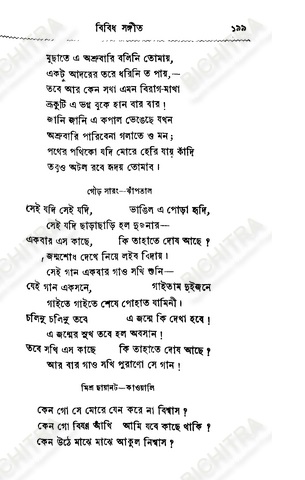 বিবিধ সঙ্গীত ১৯৯
মুছাতে এ অশ্রুবারি বলিনি তোমায়,
একটু আদরের তরে ধরিনি ত পায়,—
তবে আর কেন সখা এমন বিরাগ-মাখা
ভ্রূকুটি এ ভগ্ন বুকে হান বার বার!
জানি জানি এ কপাল ভেঙেছে যখন
অশ্রুবারি পারিবেনা গলাতে ও মন;
পথের পথিকো যদি মোরে হেরি যায় কাঁদি
তবুও অটল রবে হৃদয় তোমার।
গৌড় সারং—ঝাঁপতাল
সেই যদি সেই যদি, ভাঙিল এ পোড়া হৃদি,
সেই যদি ছাড়াছাড়ি হল দুজনার—
একবার এস কাছে, কি তাহাতে দোষ আছে?
জন্মশোধ দেখে নিয়ে লইব বিদায়।
সেই গান একবার গাও সখি শুনি—
যেই গান একসনে, গাইতাম দুইজনে
গাইতে গাইতে শেষে পোহাত যামিনী।
চলিনু চলিনু তবে এ জন্মে কি দেখা হবে!
এ জন্মের সুখ তবে হল অবসান!
তবে সখি এস কাছে কি তাহাতে দোষ আছে?
আর বার গাও সখি পুরাণো সে গান!
মিশ্র ছায়ানট—কাওয়ালি
কেন গো সে মোরে যেন করে না বিশ্বাস?
কেন গো বিষণ্ণ আঁখি আমি যবে কাছে থাকি?
কেন উঠে মাঝে মাঝে আকুল নিশ্বাস?
BICHITRA